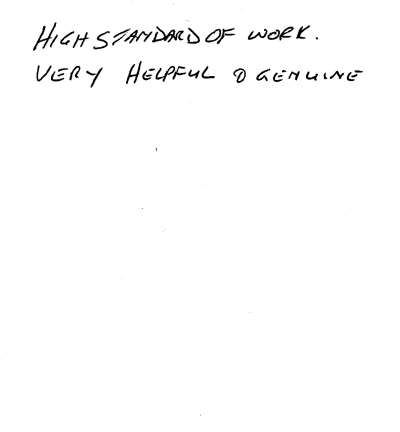 HIGH STANDARD OF WORK.
VERY HELPFUL & GENUINE